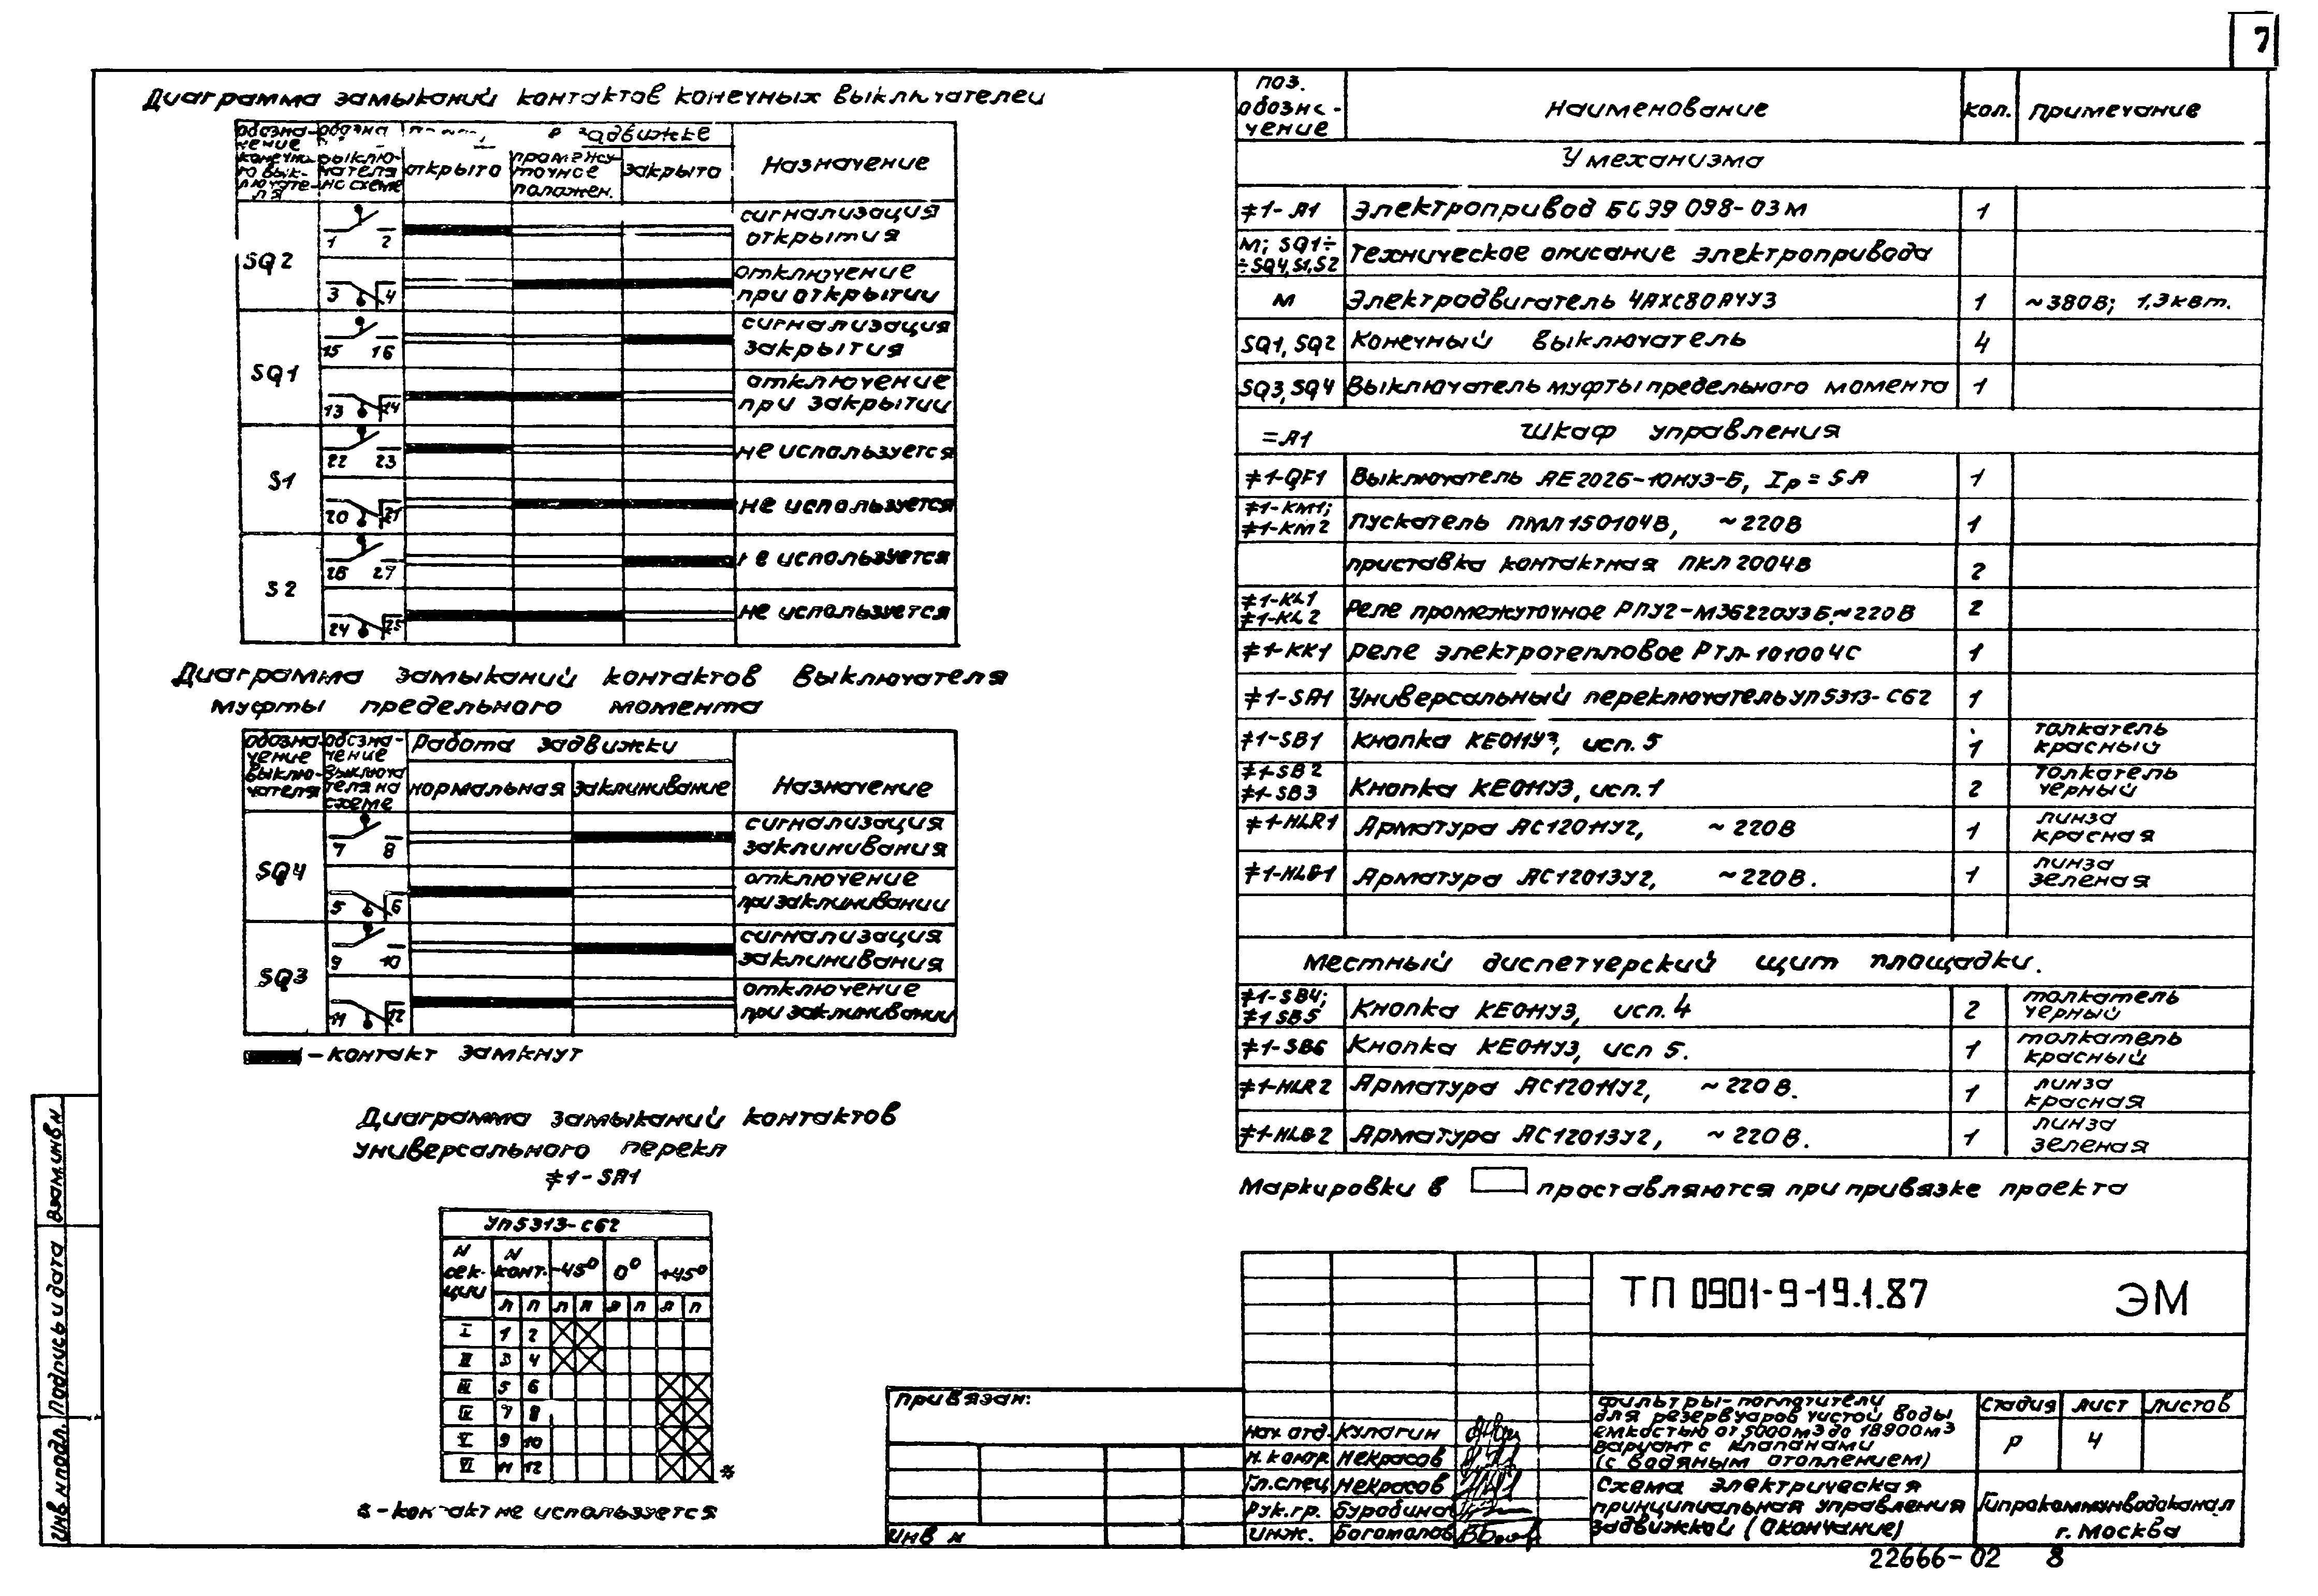 7
Диаграмма замыканий контактов конечных выключателей
обозна-чение конечно-го вык-лючате-ля
обозна выклю-чателя на схеме
задвижке
открыто
промежу-точное положен.
закрыто
Назначение
SQ2
1 2
сигнализация открытия
3 4
отключение при открытии
SQ1
15 16
сигнализация закрытия
13 14
отключение при закрытии
S1
22 23
не используется
20 21
не используется
S2
26 27
не используется
24 25
не используется
Диаграмма замыканий контактов выключателя
муфты предельного момента
обозна-чение выклю-чателя
обозна-чение выключа теля на схеме
Работа задвижки
нормальная
заклинивание
Назначение
SQ4
7 8
сигнализация заклинивания
5 6
отключение при заклинивании
SQ3
9 10
сигнализация заклинивания
11 12
отключение при заклинивании
– контакт замкнут
Диаграмма замыканий контактов
универсального перекл
≠1-SA1
УП5313-С62
N сек-ции
N конт.
-45° 0° +45°
Л П Л П Л П Л П
I 1 2
II 3 4
III 5 6
IV 7 8
V 9 10
VI 11 12 *
- контакт не используется
поз. обозна-чение
Наименование
кол.
Примечание
У механизма
≠1-A1 Электропривод БС99 098-03М 1
М; SQ1÷ ÷SQ4,S1,S2 Техническое описание электропривода
М Электродвигатель 4АХС80А4У3 1 ~380В; 1,3квт.
SQ1, SQ2 Конечный выключатель 4
SQ3, SQ4 Выключатель муфты предельного момента 1
=A1 Шкаф управления
≠1-QF1 Выключатель АЕ2026-10НУ3-Б, Iр=5А 1
≠1-KM1; ≠1-KM2 Пускатель ПМЛ150104В, ~220В 1
приставка контактная ПКЛ2004В 2
≠1-KL1 ≠1-KL2 Реле промежуточное РПУ2-М36220У3Б, ~220В 2
≠1-KK1 реле электротепловое РТЛ-101004С 1
≠1-SA1 Универсальный переключатель УП5313-С62 1
≠1-SB1 Кнопка КЕ011У3, исп. 5 1 толкатель красный
≠1-SB2 ≠1-SB3 Кнопка КЕ011У3, исп. 1 2 толкатель черный
≠1-HLR1 Арматура АС12011У2, ~220В 1 линза красная
≠1-HLG1 Арматура АС12013У2, ~220В. 1 линза зеленая
Местный диспетчерский щит площадки.
≠1-SB4; ≠1SB5 Кнопка КЕ011У3, исп. 4 2 толкатель черный
≠1-SB6 Кнопка КЕ011У3, исп 5. 1 толкатель красный
≠1-HLR2 Арматура АС12011У2, ~220В. 1 линза красная
≠1-HLG2 Арматура АС12013У2, ~220В. 1 линза зеленая
Маркировки в проставляются при привязке проекта
ТП 0901-9-19.1.87 ЭМ
Привязан:
инв н
нач. отд. Кулагин
н. контр Некрасов
Гл.спец Некрасов
Рук.гр. Буробина
инж. Богомолов
Фильтры-поглотители
для резервуаров чистой воды
емкостью от 5000м3 до 18900м3
вариант с клапанами
(с водяным отоплением)
Стадия Лист Листов
Р 4
Схема электрическая
принципиальная управления
задвижкой (Окончание)
Гипрокоммунводоканал
г. Москва
22666-02 8
Взам.инв.н
Подпись и дата
Инв.н подл.